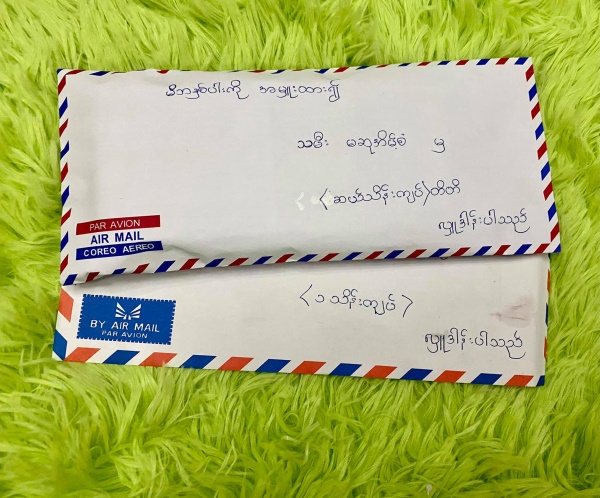 မိဘနှစ်ပါးကို အမှူးထား၍
သမီး မဆုအိမ့်စံ မှ
<ဆယ်သိန်းကျပ်>တိတိ
လှူဒါန်းပါသည်
PAR AVION
AIR MAIL
COREO AEREO
<၁ သိန်းကျပ်>
လှူဒါန်းပါသည်
BY AIR MAIL
PAR AVION